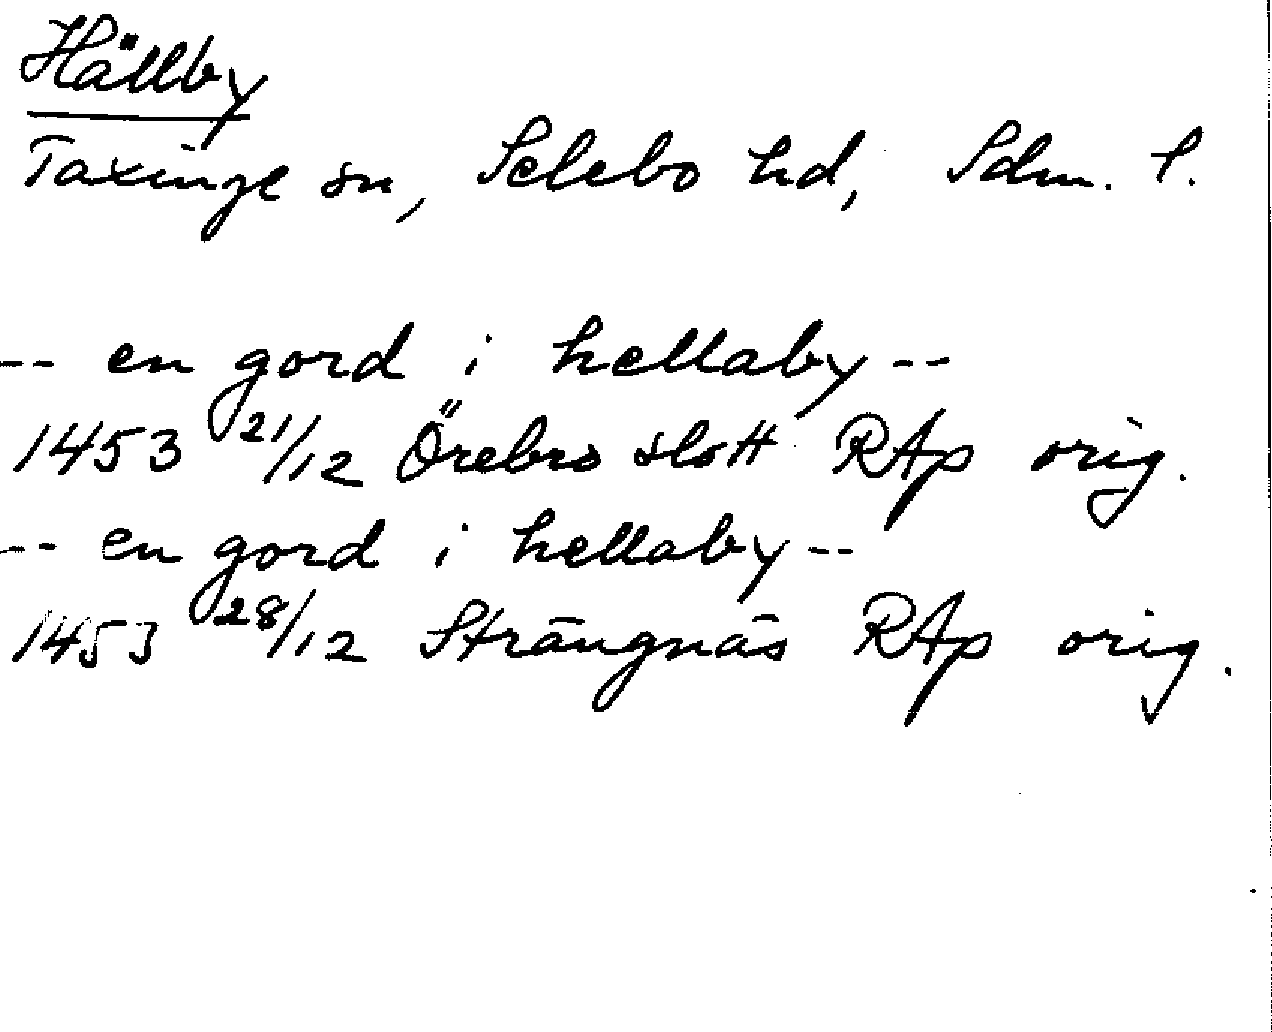 Hällby
Taxinge sn, Selebo hd, Sdm. l.
-- en gord i hellaby --
1453 21/12 Örebro slott RAp orig.
-- en gord i hellaby --
1453 28/12 Strängnäs RAp orig.